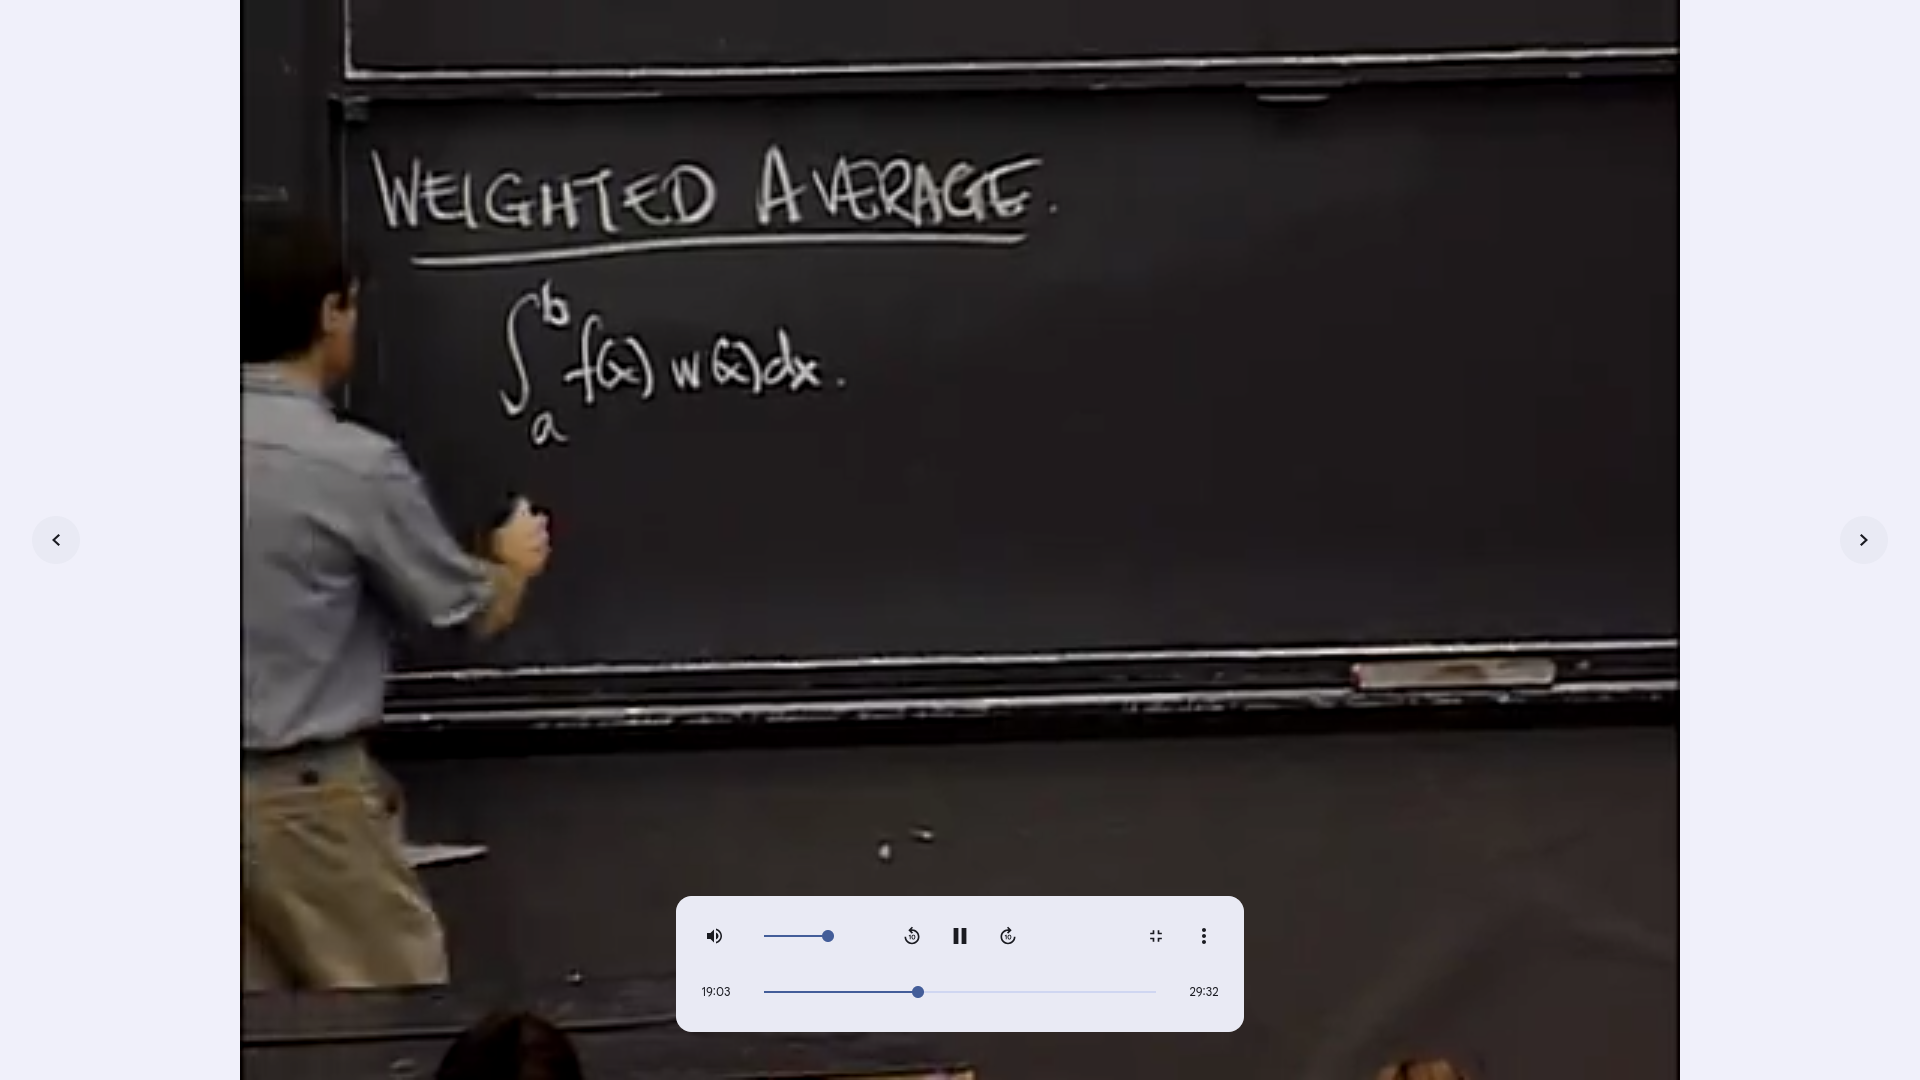 WEIGHTED AVERAGE.
∫_a^b f(x) w(x) dx.
10
10
19:03
29:32